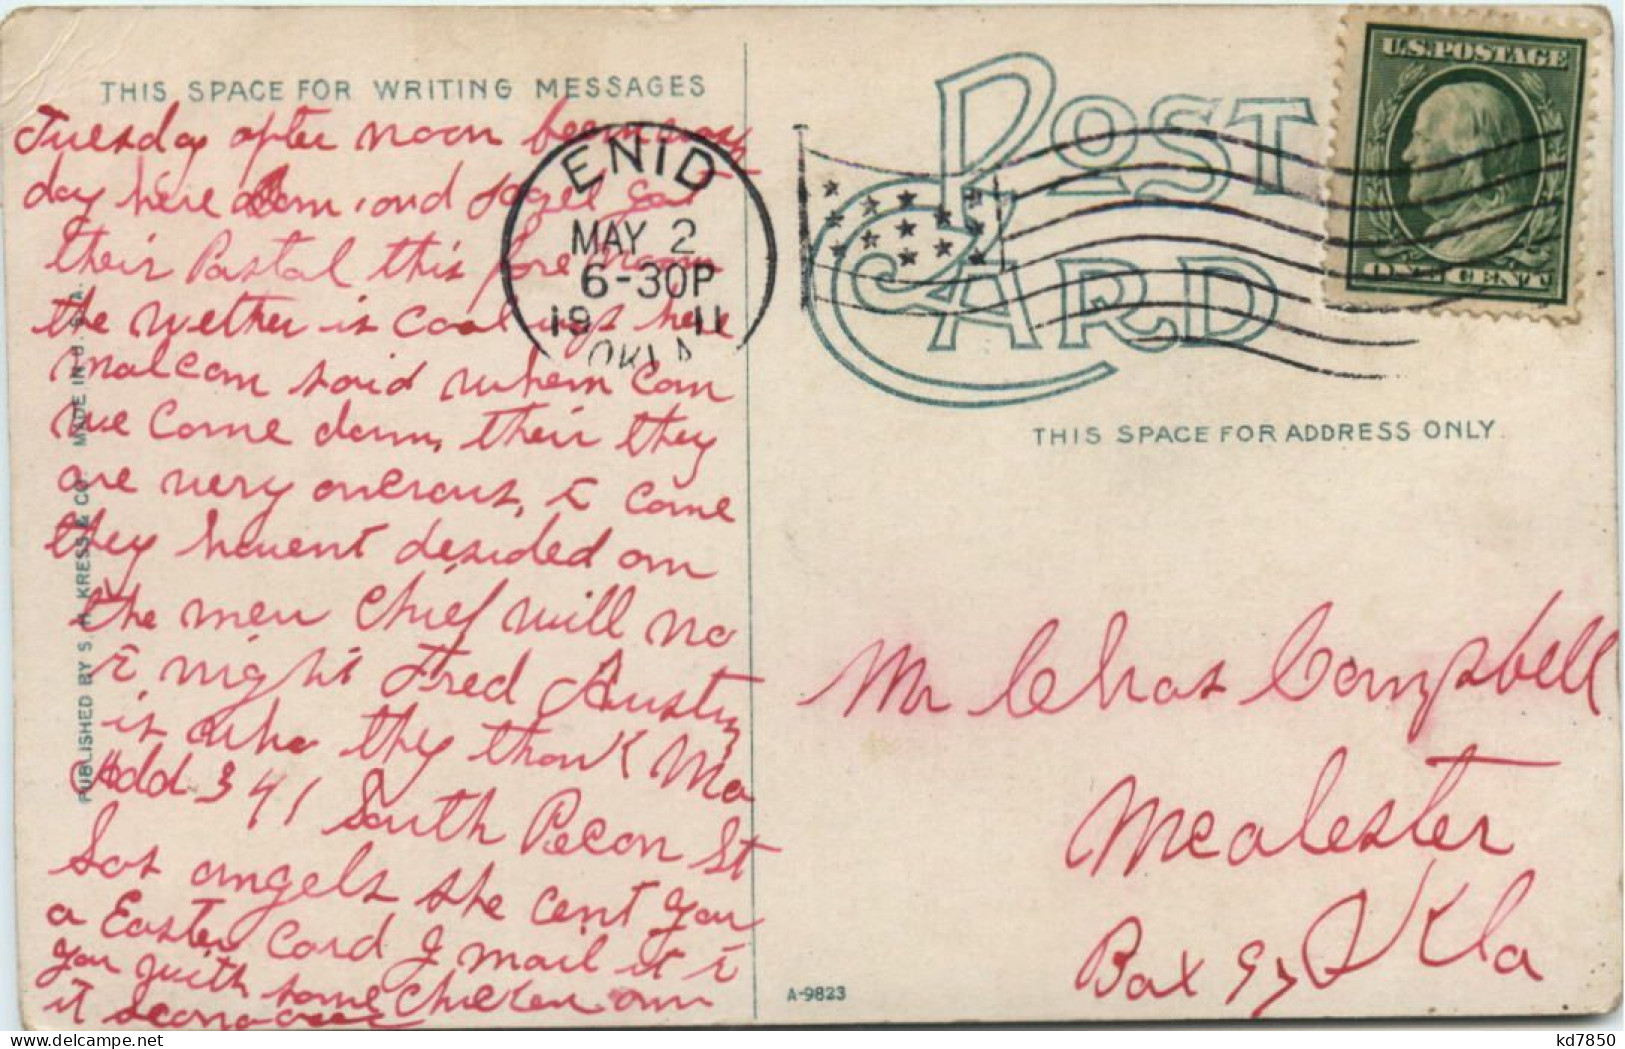 THIS SPACE FOR WRITING MESSAGES
Tuesday after noon been a
day here and got
their Postal this fore noon
the wether is here
malcom said when can
we come down, their they
are very t come
they havent desided on
the men chief will no
t night Fred Austin
is who they thank Ma
Add 341 South Pecon St
Los angels she cent you
a Easter Card I mail it t
you with some chicken on
it
PUBLISHED BY S. H. KRESS & CO. MADE IN U. S. A.
ENID
MAY 2
6-30P
19 11
OKLA
POST CARD
U.S.POSTAGE
ONE CENT
THIS SPACE FOR ADDRESS ONLY.
Mr Chas Campbell
Mcalester
Box 97 Okla
A-9823
delcampe.net
kd7850